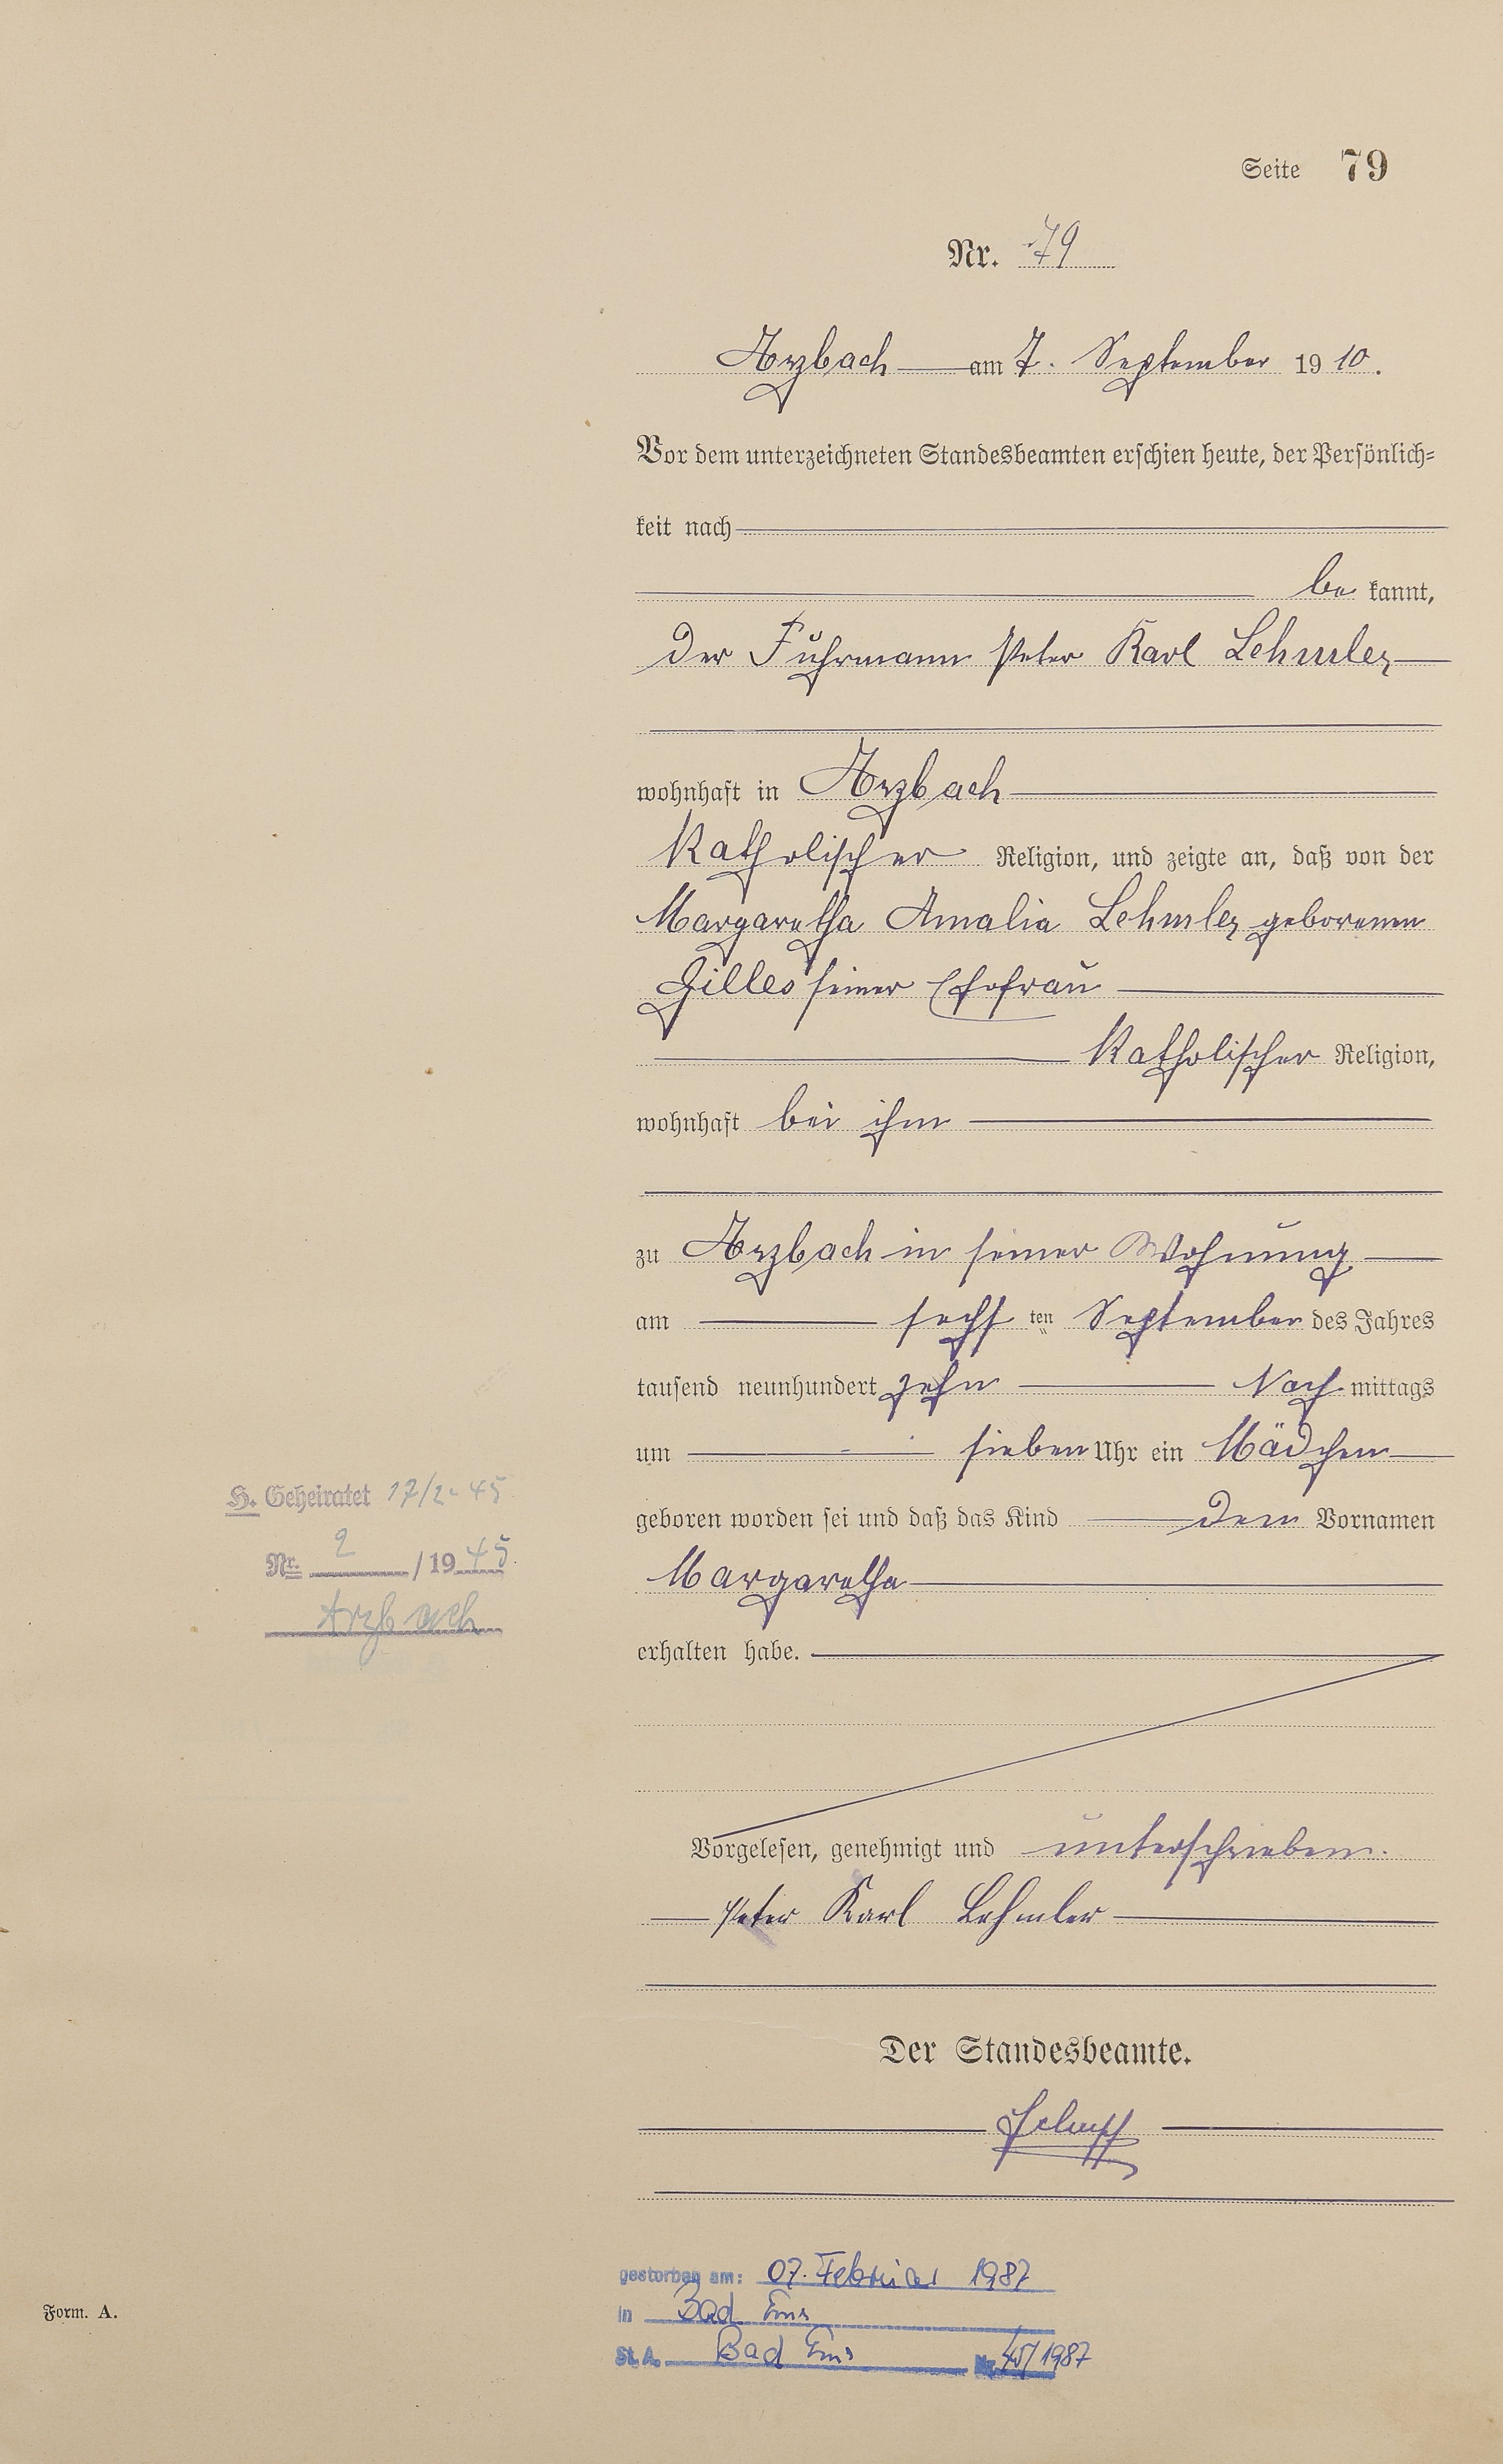 Seite 79
Nr. 79
Arzbach am 7. September 1910.
Vor dem unterzeichneten Standesbeamten erschien heute, der Persönlich-
keit nach
be kannt,
der Fuhrmann Peter Karl Lehmler
wohnhaft in Arzbach
katholischer Religion, und zeigte an, daß von der
Margaretha Amalia Lehmler geborenen
Gilles seiner Ehefrau
katholischer Religion,
wohnhaft bei ihm
zu Arzbach in seiner Wohnung
am sechsten September des Jahres
tausend neunhundert zehn Nachmittags
um sieben Uhr ein Mädchen
geboren worden sei und daß das Kind den Vornamen
Margaretha
erhalten habe.
H. Geheiratet 17/2. 45
Nr. 2 / 1945
Arzbach
Vorgelesen, genehmigt und unterschrieben.
Peter Karl Lehmler
Der Standesbeamte.
gestorben am: 07. Februar 1987
in Bad Ems
St. A. Bad Ems Nr. 45/1987
Form. A.